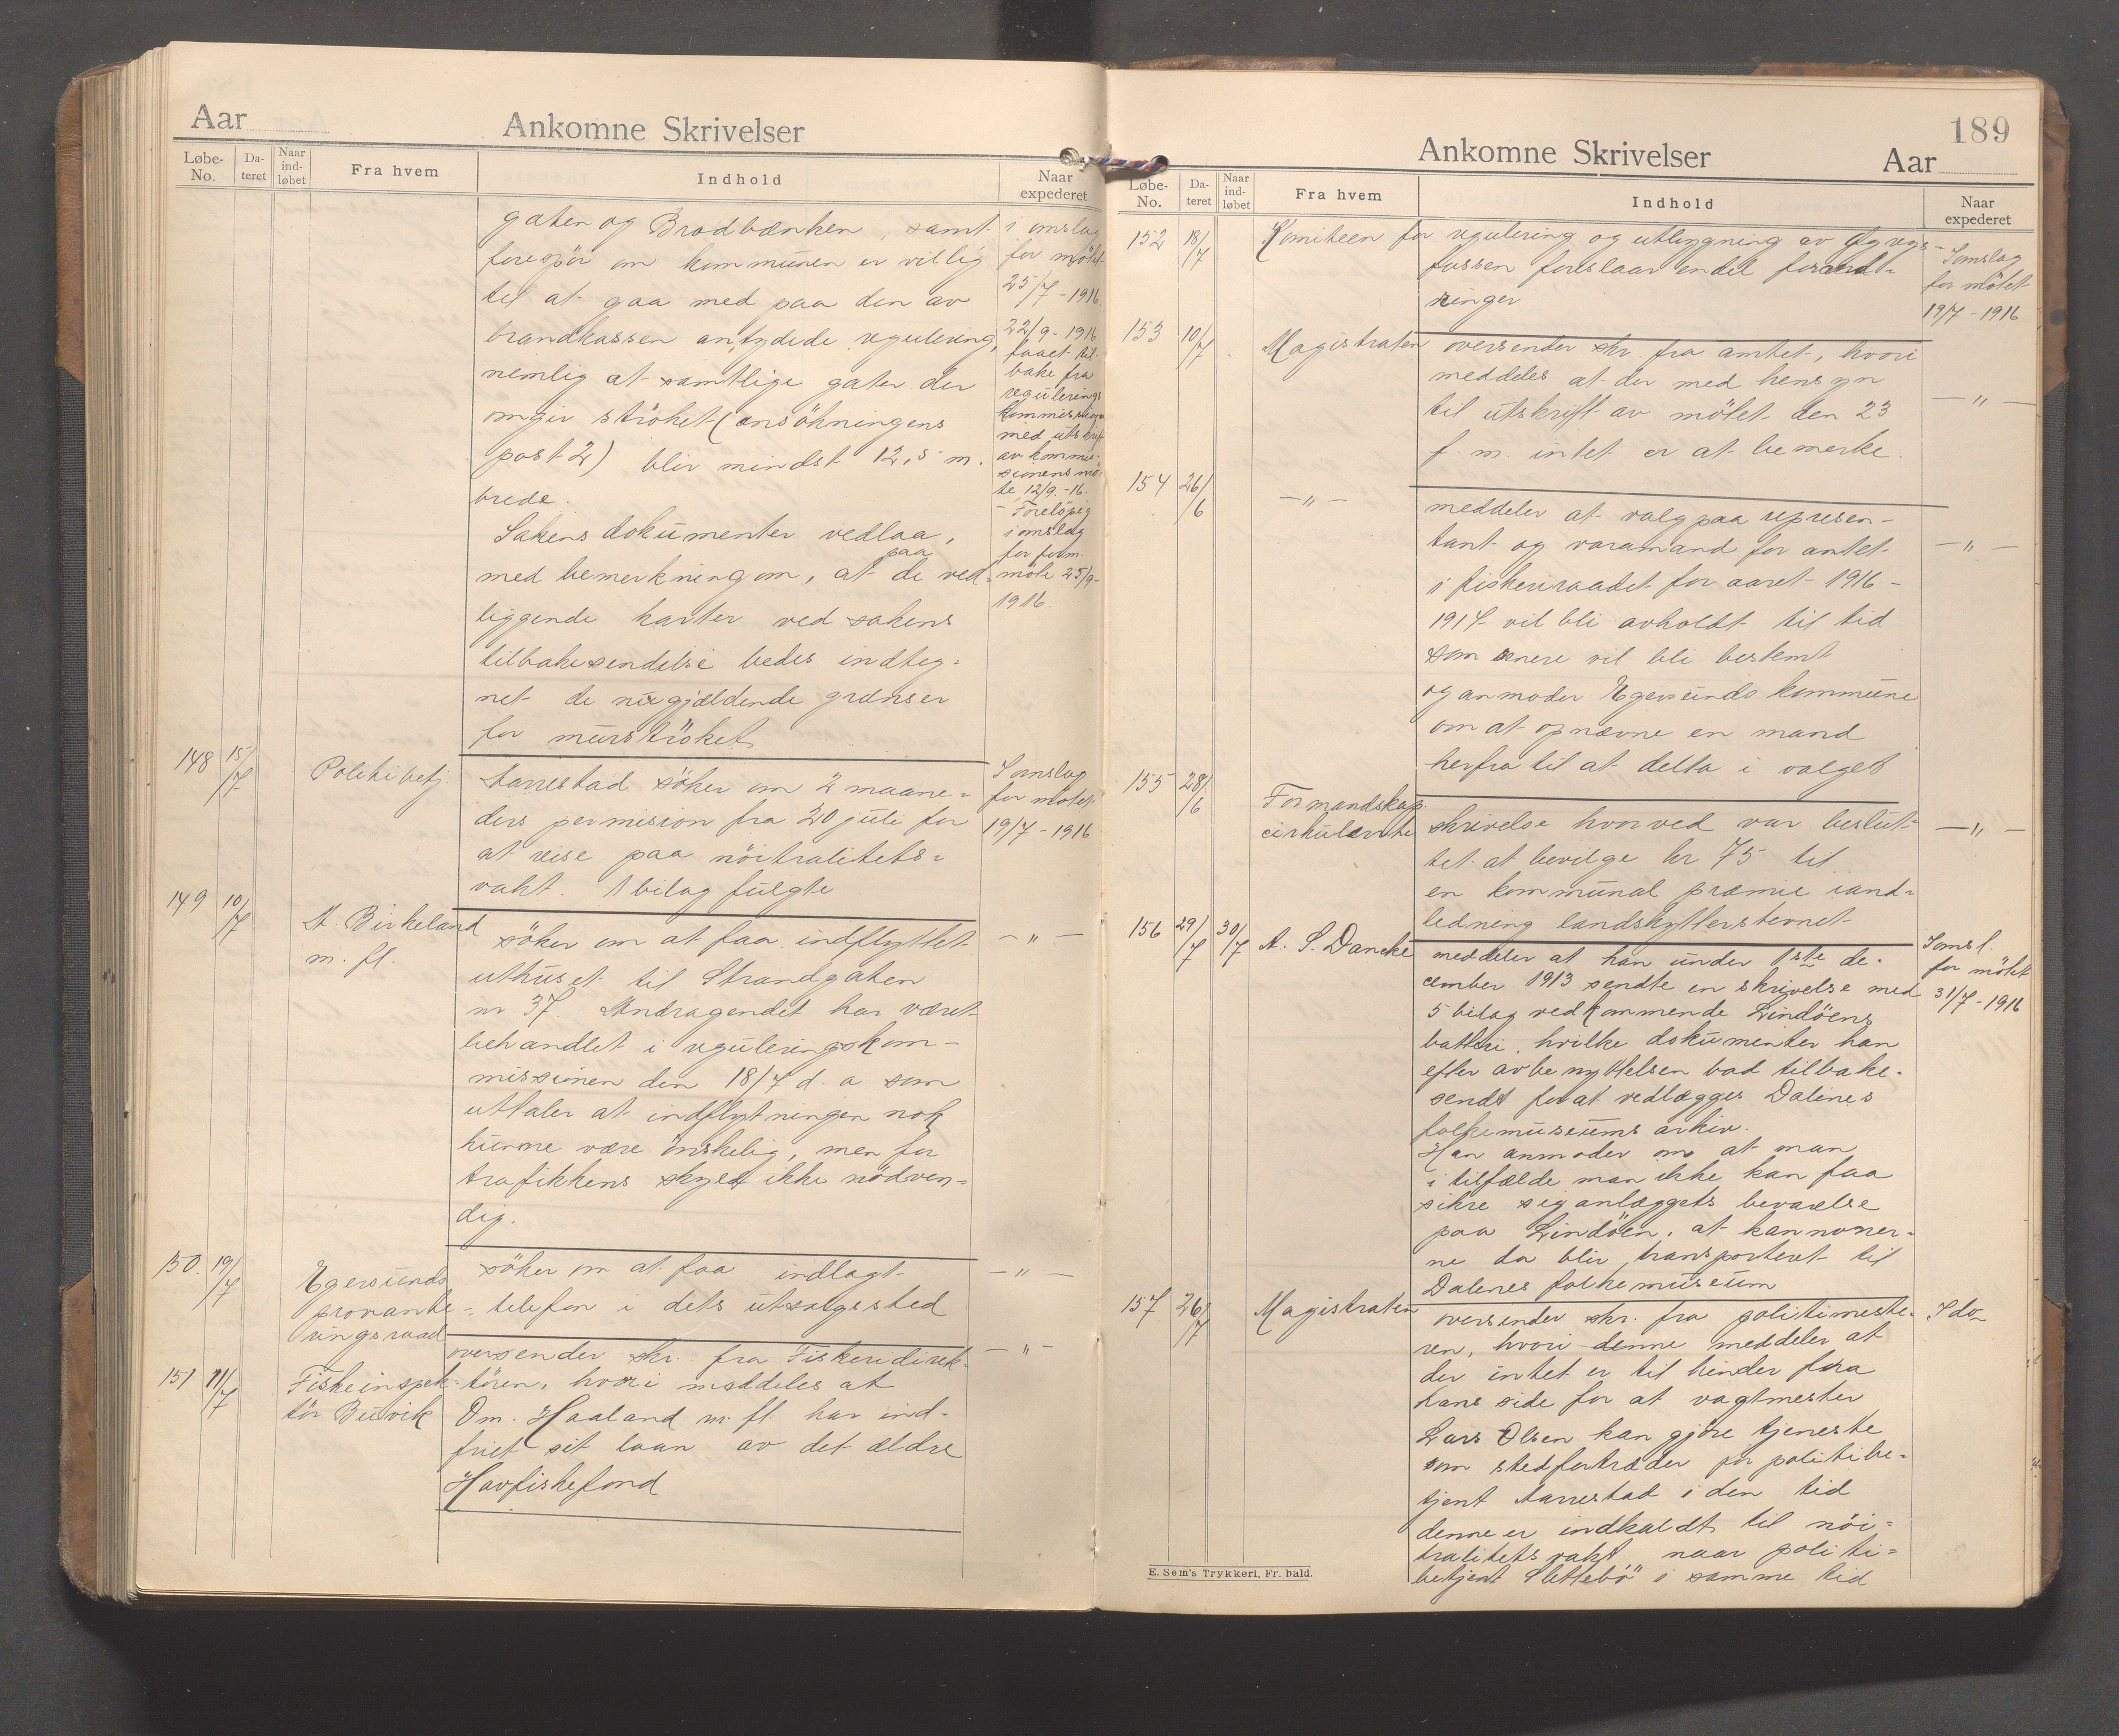 Aar
Ankomne Skrivelser
Løbe-No.
Da-teret
Naar ind-løbet
Fra hvem
Indhold
Naar expederet
gaten og Brødbænken, samt
forespör om kommunen er villig
til at gaa med paa den av
brandkassen antydede regulering,
nemlig at samtlige gater der
omgir ströket (ansökningens
post 2) blir mindst 12,5 m.
brede.
Sakens dokumenter vedlaa,
med bemerkning om, at de paa ved-
liggende karter ved sakens
tilbakesendelse bedes indteg-
net de nugjældende grænser
for murströket
i omslag
for mötet
25/7 - 1916
22/9 - 1916
faaet til-
bake fra
regulerings
kommissionen
med utskrift
av kommis-
sionens mö-
te 12/9 - 16.
- Forelöpig
i omslag
for form.
möte 25/9-
1916.
148 15/7 Politibetj. Aarrestad söker om 2 maane-
ders permision fra 20 juli for
at reise paa nöitralitets-
vakt. 1 bilag fulgte
I omslag
for mötet
19/7 - 1916
149 10/7 A. Birkeland
m. fl.
söker om at faa indflyttet
uthuset til Strandgaten
nr 37. Andragendet har været
behandlet i reguleringskom-
missionen den 18/7 d. a som
uttaler at indflytningen nok
kunne være önskelig, men for
trafikkens skyld ikke nödven-
dig.
— " —
150. 19/7 Egersunds
proviante-
ringsraad
söker om at faa indlagt
telefon i dets utsalgssted
— " —
151 11/7 Fiskeinspek-
tör Buvik
oversender skr. fra Fiskeridirek-
tören, hvori meddeles at
Om. Haaland m. fl. har ind-
friet sit laan av det ældre
Havfiskefond
— " —
189
Ankomne Skrivelser
Aar
Løbe-No.
Da-teret
Naar ind-løbet
Fra hvem
Indhold
Naar expederet
152 18/7 Komiteen for regulering og utbygning av
fossen foreslaar endel forand-
ringer
I omslag
for mötet
19/7 - 1916
153 10/7 Magistraten oversender skr. fra amtet, hvori
meddeles at der med hensyn
til utskrift av mötet den 23
f. m. intet er at bemerke.
— " —
154 26/6 — " —
meddeler at valg paa represen-
tant og varamand for amtet
i fiskeriraadet for aaret 1916 -
1917 vil bli avholdt til tid
som senere vil bli bestemt
og anmoder Egersunds kommune
om at opnævne en mand
herfra til at delta i valget
— " —
155 28/6 Formandskap.
cirkulærte
skrivelse hvorved var beslut-
tet at bevilge kr 75 til
en kommunal præmie i and-
ledning landskytterstevnet
— " —
156 29/7 30/7 A. S. Dancke meddeler at han under 1ste de-
cember 1913 sendte en skrivelse med
5 bilag vedkommende Lindöens
batteri, hvilke dokumenter han
efter avbenyttelsen bad tilbake-
sendt for at vedlægges Dalenes
folkemuseums arkiv.
Han anmoder om at man
i tilfælde man ikke kan faa
sikre sig anlæggets bevarelse
paa Lindöen, at kannoner-
ne da blir transporteret til
Dalenes folkemuseum
I omsl.
for mötet
31/7 - 1916
157 26/7 Magistraten oversender skr. fra politimeste-
ren, hvori denne meddeler at
der intet er til hinder fra
hans side for at vagtmester
Lars Olsen kan gjöre tjeneste
som stedfortræder for politibe-
tjent Aarrestad i den tid
denne er indkaldt til nöi-
tralitetsvakt naar politi-
betjent Slettebö i samme tid
I do
E. Sem's Trykkeri, Fr.hald.